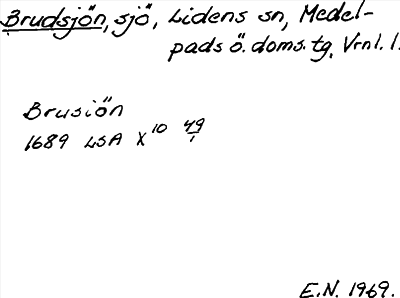 Brudsjön, sjö, Lidens sn, Medel-
pads ö. doms. tg, Vrnl. l.
Brusiön
1689 LSA X 10 49/1
E.N. 1969.